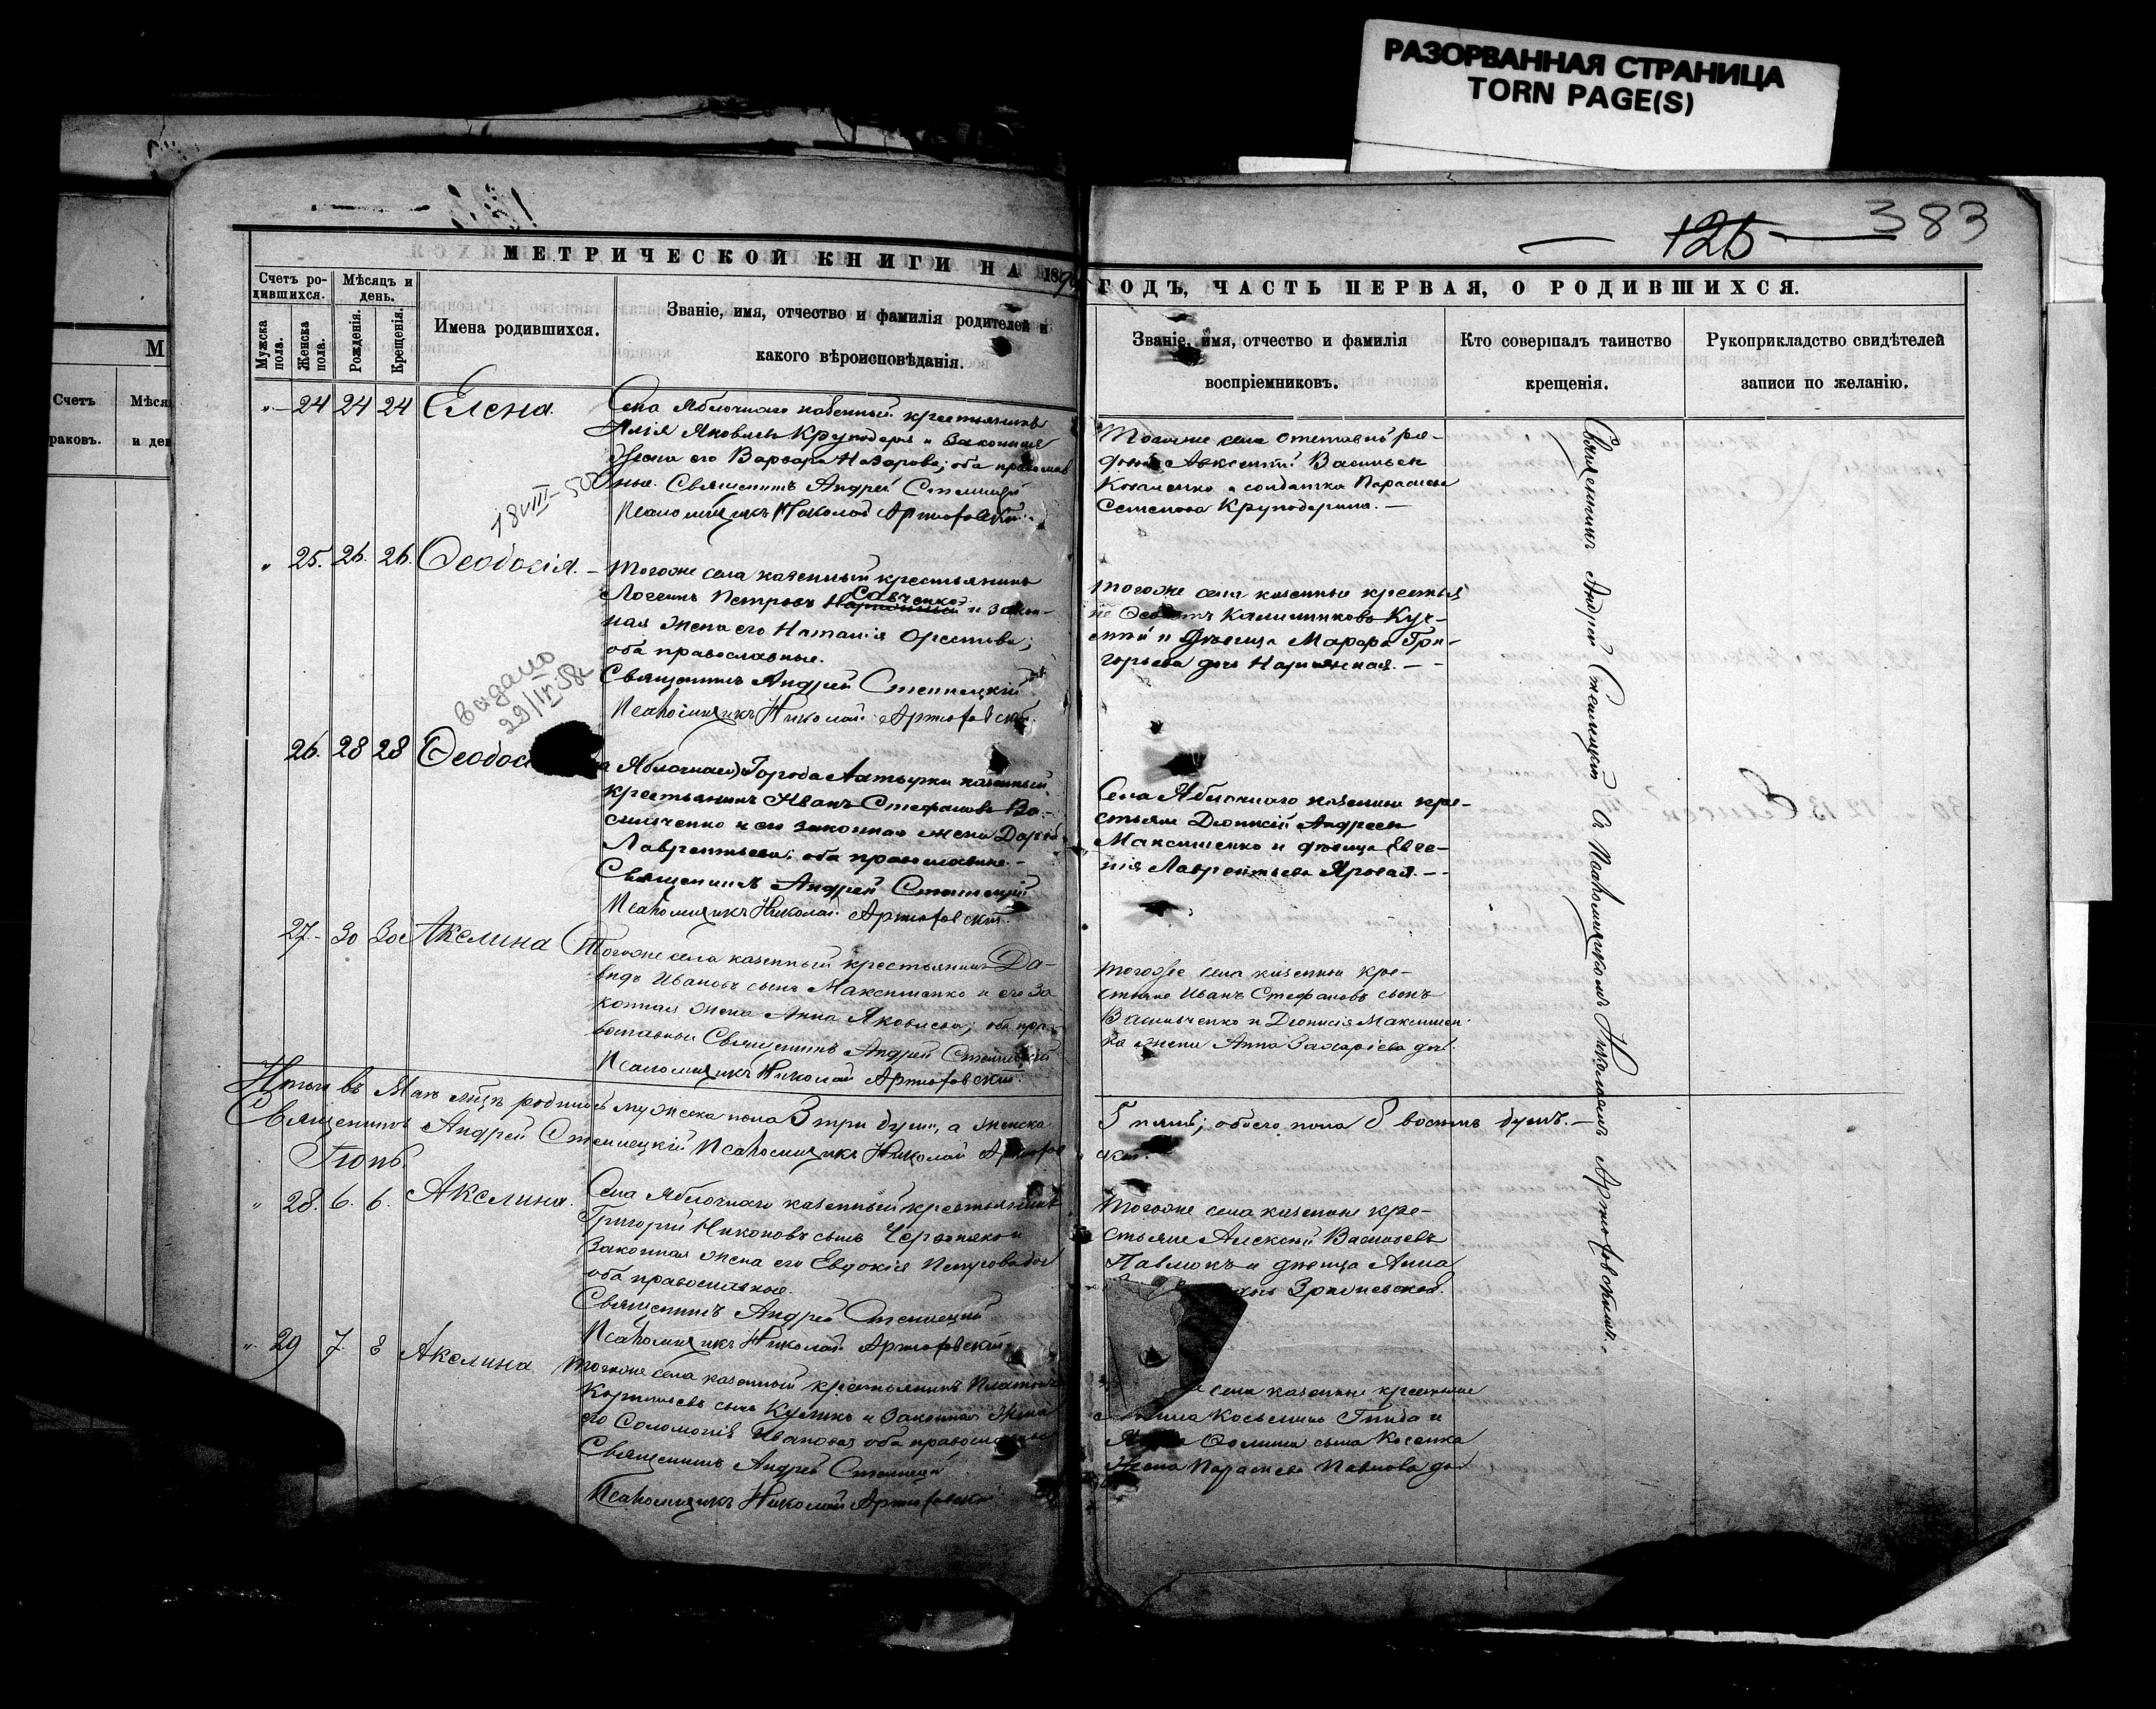 РАЗОРВАННАЯ СТРАНИЦА
TORN PAGE(S)
383
126
МЕТРИЧЕСКОЙ КНИГИ НА 189
ГОДЪ, ЧАСТЬ ПЕРВАЯ, О РОДИВШИХСЯ.
Счетъ ро-
дившихся.
Мѣсяцъ и
день.
Мужска
пола.
Женска
пола.
Рожденія.
Крещенія.
Имена родившихся.
Званіе, имя, отчество и фамилія родителей и
какого вѣроисповѣданія.
Званіе, имя, отчество и фамилія
воспріемниковъ.
Кто совершалъ таинство
крещенія.
Рукоприкладство свидѣтелей
записи по желанію.
М
Счетъ
Мѣся
раковъ.
и ден
" 24 24 24 Елена.
Села Яблочнаго казенный крестьянинъ
Яковлевъ Круподеря и законная
жена его Варвара Назарова; оба православ
ные. Священникъ Андрей Стеллецкій
Псаломщикъ Николай Артюховскій.
Тогоже села отставной ря-
довой Авксентій Васильевъ
Коваленко и солдатка Параскева
Семенова Круподерина. —
18 VIII - 50
" 25. 26. 26. Ѳеодосія. —
Тогоже села казенный крестьянинъ
Логгинъ Петровъ Савченко и закон-
ная жена его Наталія Орестова;
оба православные.
Священникъ Андрей Стеллецкій
Псаломщикъ Николай Артюховскій.
Тогоже села казенные крестья
не Калинниковъ
и дѣвица Марфа Гри-
горьева дочь
видано
29/IV 58г
26. 28 28 Ѳеодос
а Яблочнаго) Города Ахтырки казенный
крестьянинъ Иванъ Стефановъ Ва-
сильченко и его законная жена Дарья
Лаврентьева; оба православные. —
Священникъ Андрей Стеллецкій
Псаломщикъ Николай Артюховскій.
Села Яблочнаго казенные кре-
стьяне Діонисій Андреевъ
Максименко и дѣвица Евге-
нія Лаврентьева Яровая. —
27. — 30 30 Акелина
Тогоже села казенный крестьянинъ Да-
видъ Ивановъ сынъ Максименко и его за
конная жена Анна Яковлева; оба пра-
вославные Священникъ Андрей Стеллецкій
Псаломщикъ Николай Артюховскій.
Тогоже села казенные кре-
стьяне Иванъ Стефановъ сынъ
Васильченко и Діонисія Максимен-
ка жена Анна Захаріева доч.
Итого въ Маѣ мѣсяцѣ родилось мужска пола 3 три души, а женска
5 пять; обоего пола 8 восемь душъ. —
Священникъ Андрей Стеллецкій Псаломщикъ Николай Артюхов
скій.
Іюнь.
" 28. 6. 6. Акелина.
Села Яблочнаго казенный крестьянинъ
Григорій Никоновъ сынъ Червонякъ и
законная жена его Евдокія Петрова доч
оба православные.
Священникъ Андрей Стеллецкій
Псаломщикъ Николай Артюховскій
Тогоже села казенные кре-
стьяне Алексѣй Васильевъ
Павлюкъ и дѣвица Анна
" 29 7. 8 Акелина
Тогоже села казенный крестьянинъ Платонъ
сынъ Куликъ и законная жена
его Соломонія Иванова оба православные
Священникъ Андрей Стеллецкій
Псаломщикъ Николай Артюховскій
села казенные крестьяне
Косьминъ Гнида и
сына Косенка
жена Параскева Павлова доч
Священникъ Андрей Стеллецкій съ Псаломщикомъ Николаемъ Артюховскимъ. —